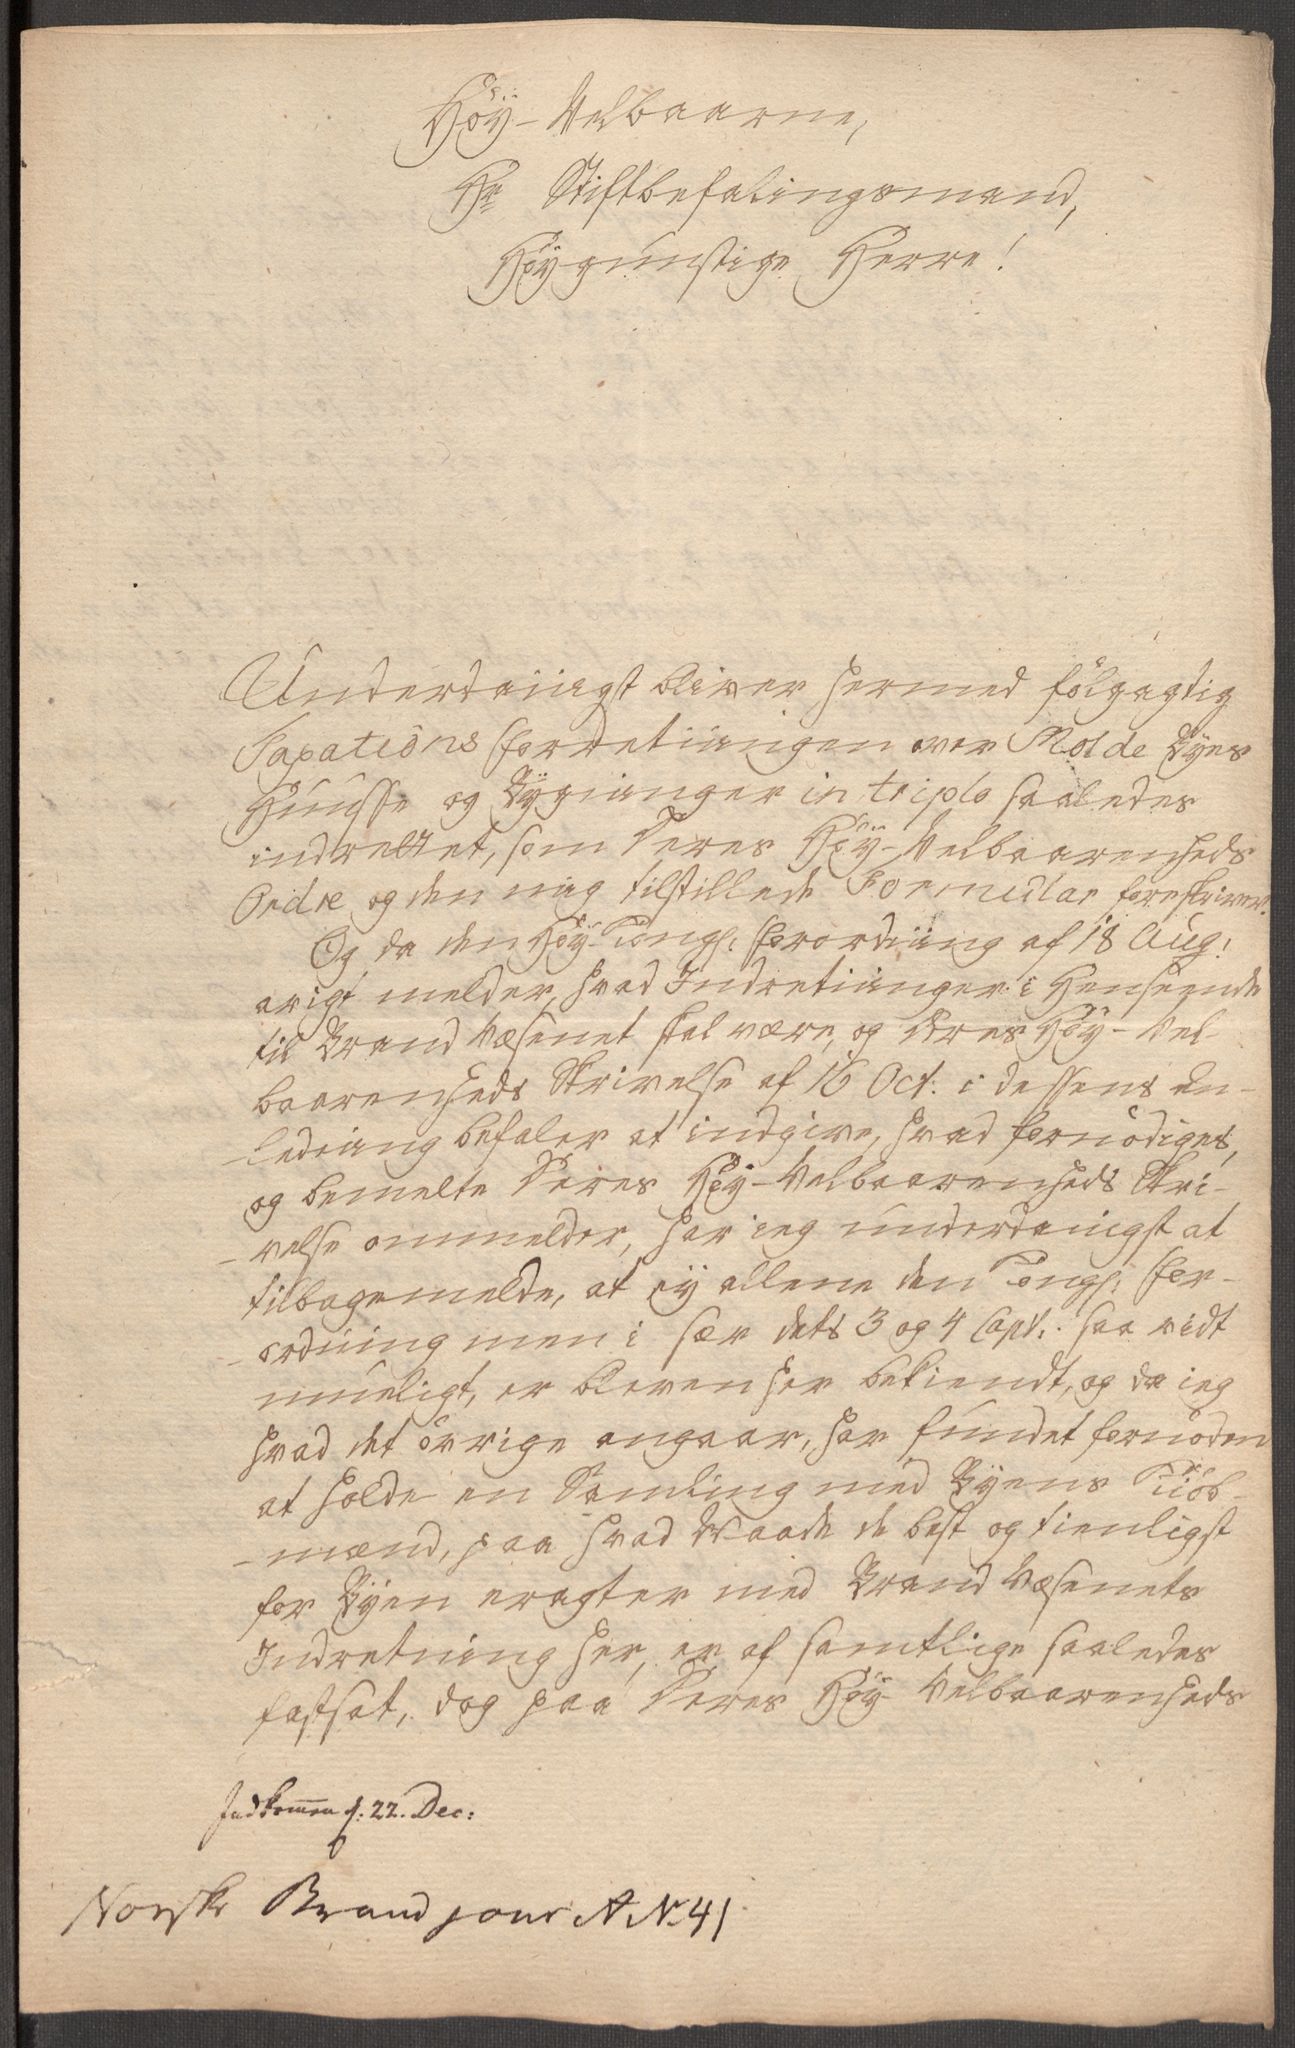 Höÿ-Velbaarne,
Hr Stiftbefalingsmand,
Höÿgunstige Herre!
Underdanigst bliver hermed fölgagtig
Taxations Forretningen over Molde Byes
Huusse og Bÿgninger in triplo saaledes
indrettet, som Deres Höÿ-Velbaarenheds
Ordre og den mig tilstillede Formular foreskriver.
Og da den Höÿ-Kongl: Forordning af 18 Aug:
arigt melder, hvad Indretninger i Henseende
til Brand Væsenet skal være, og Deres Höÿ-Vel-
baarenheds Skrivelse af 16 Oct: i dessens An-
-ledning befaler at indgive, hvad fornödiges,
og bemelte Deres Höÿ-Velbaarenheds Skri-
-velse ommelder, har ieg underdanigst at
tilbagemelde, at eÿ allene den Kongl: For-
-ordning men i sær dets 3 og 4 Capt: saa vidt
mueligt, er bleven her bekiendt, og da ieg
hvad det övrige angaar, har fundet fornöden
at holde en Samling med Bÿens Kiöb-
-mænd, paa hvad Maade de best og tienligst
for Bÿen eragter med Brand Væsenets
Indretning her, er af samtlige saaledes
fastsat, dog paa Deres Höÿ-Velbaarenheds
Indkommen d: 22. Dec:
Norske Brand jour A No 41